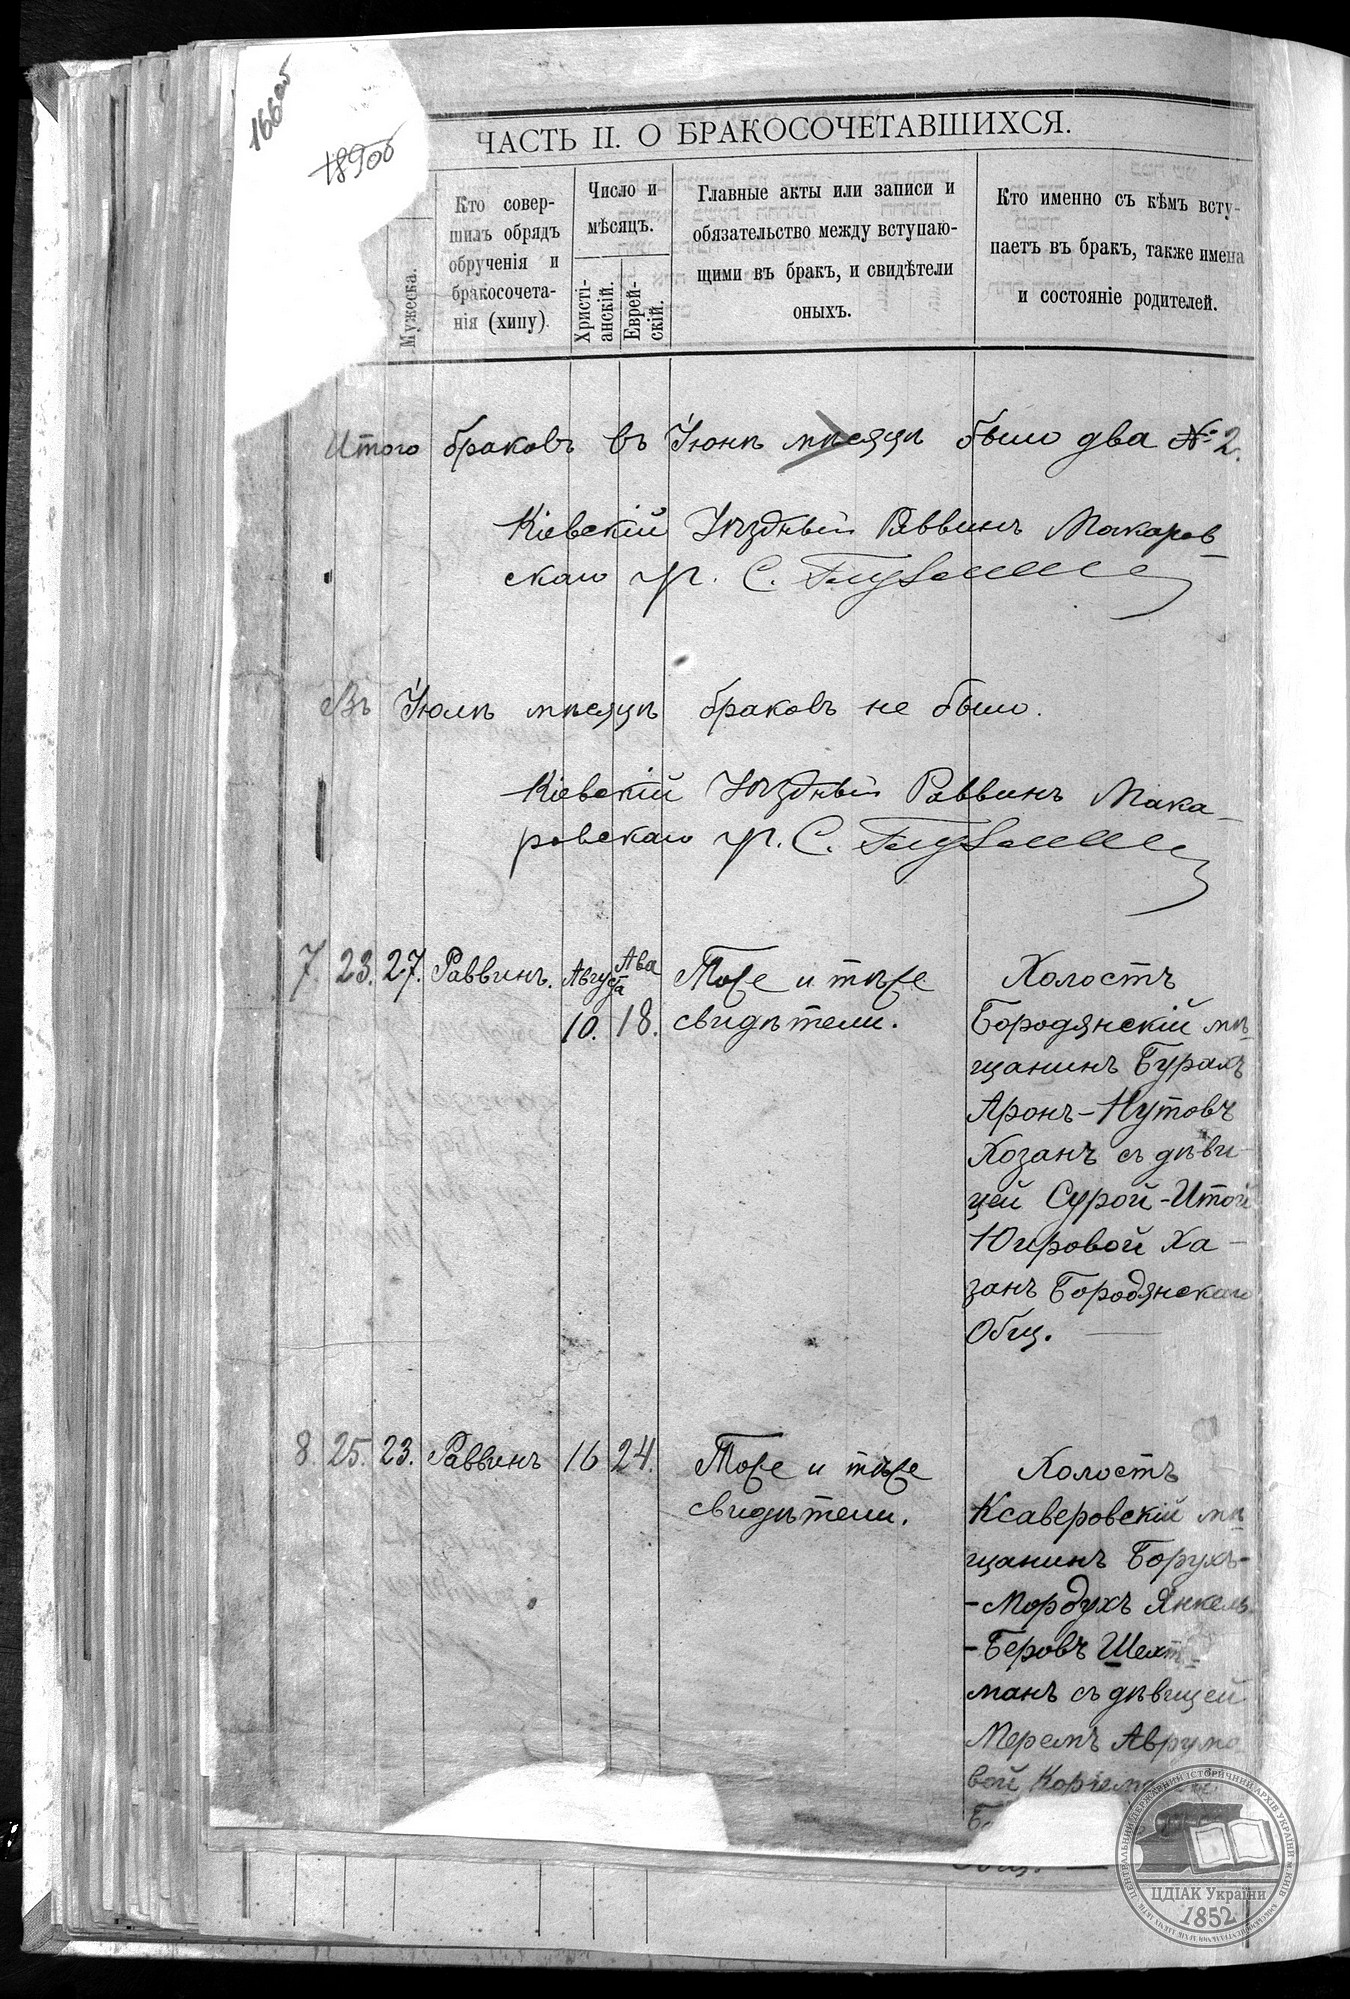 166об
189об
ЧАСТЬ II. О БРАКОСОЧЕТАВШИХСЯ.
Мужеска.
Кто совер-
шилъ обрядъ
обрученія и
бракосочета-
нія (хипу).
Число и
мѣсяцъ.
Христі-
анскій.
Еврей-
скій.
Главные акты или записи и
обязательство между вступаю-
щими въ бракъ, и свидѣтели
оныхъ.
Кто именно съ кѣмъ всту-
паетъ въ бракъ, также имена
и состояніе родителей.
Итого браковъ въ Іюнѣ мѣсяцѣ было два № 2.
Кіевскій Уѣздный Раввинъ Макаров-
скаго уч. С.
Въ Іюлѣ мѣсяцѣ браковъ не было.
Кіевскій Уѣздный Раввинъ Мака-
ровскаго уч. С.
7. 23. 27. Раввинъ. Августа 10. Ава 18.
Тоже и тѣже
свидѣтели.
Холостъ
Бородянскій мѣ-
щанинъ
Аронъ-Нутовъ
Хозанъ съ дѣви-
цей Сурой-Итой
Юкровой Ха-
занъ Бородянскаго
Общ.
8. 25. 23. Раввинъ 16 24.
Тоже и тѣже
свидѣтели.
Холостъ
Ксаверовскій мѣ-
щанинъ Борухъ-
-Мордухъ Янкель-
-Беровъ Шехт-
манъ съ дѣвицей
Меремъ Аврумо-
вой
Общ.
ЦЕНТРАЛЬНИЙ ДЕРЖАВНИЙ ІСТОРИЧНИЙ АРХІВ УКРАЇНИ м. КИЇВ
ЦДІАК України
1852